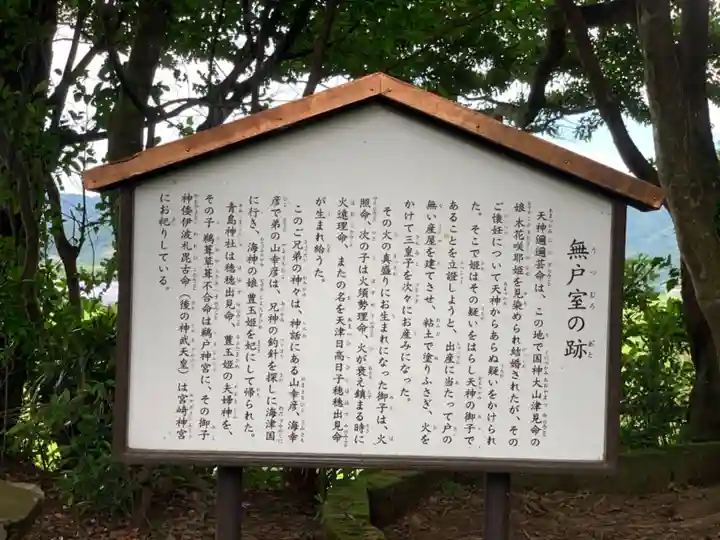 無戸室の跡
天神邇邇芸命は、この地で国神大山津見命の
娘、木花咲耶姫を見染められ結婚されたが、その
ご懐妊について天神からあらぬ疑いをかけられ
た。そこで姫はその疑いをはらし天神の御子で
あることを立證しようと、出産に当たって戸の
無い産屋を建てさせ、粘土で塗りふさぎ、火を
かけて三皇子を次々にお産みになった。
その火の真盛りにお生まれになった御子は、火
照命、次の子は火須勢理命、火が衰え鎮まる時に
火遠理命、またの名を天津日高日子穂穂出見命
が生まれ給うた。
このご兄弟の神々は、神話にある山幸彦、海幸
彦で弟の山幸彦は、兄神の釣針を探しに海津国
に行き、海神の娘豊玉姫を妃にして帰られた。
青島神社は穂穂出見命、豊玉姫の夫婦神を、
その子鵜葺草葺不合命は鵜戸神宮に、その御子
神倭伊波礼毘古命（後の神武天皇）は宮崎神宮
にお祀りしている。